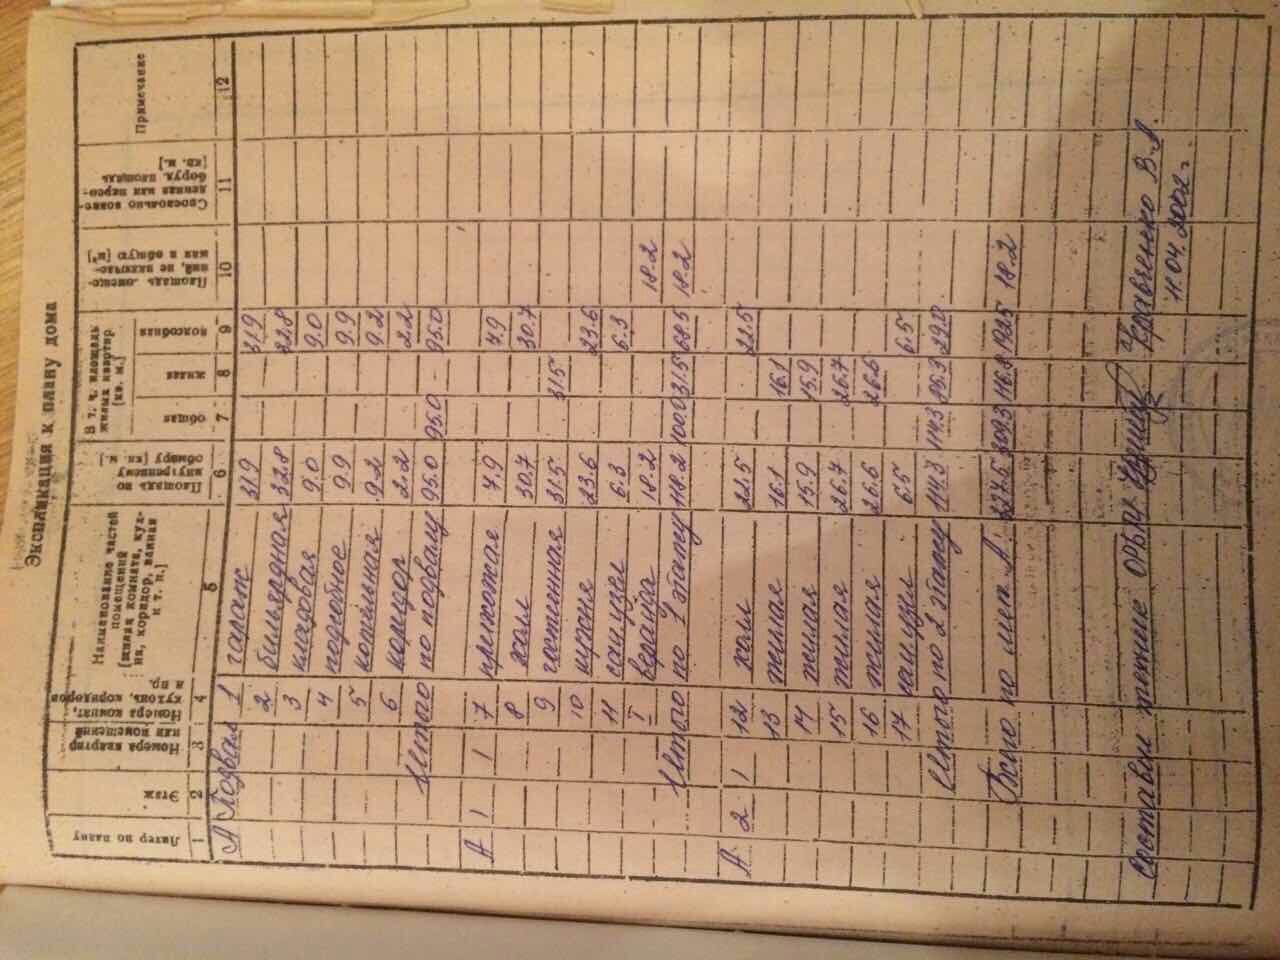 Экспликация к плану дома
Литер по плану
Этаж
Номера квартир или помещений
Номера комнат, кухонь, коридоров и пр.
Наименование частей помещений [жилая комната, кухня, коридор, ванная и т. п.]
Площадь по внутреннему обмеру [кв. м.]
В т. ч. площадь жилых квартир [кв. м.]
общая
жилая
подсобная
Площадь помещений, не включаемая в общую [м²]
Своевольно возведенная или переоборуд. площадь [кв. м.]
Примечание
1 2 3 4 5 6 7 8 9 10 11 12
А Подвал 1 гараж 31.9 31.9
2 бильярдная 32.8 32.8
3 кладовая 9.0 9.0
4 подсобное 9.9 9.9
5 котельная 9.2 9.2
6 коридор 2.2 2.2
Итого по подвалу 95.0 95.0 - 95.0
А 1 1 7 прихожая 7.9 7.9
8 холл 30.7 30.7
9 гостинная 31.5 31.5
10 кухня 23.6 23.6
11 санузел 6.3 6.3
I веранда 18.2 18.2
Итого по 1 этажу 118.2 100.0 31.5 68.5 18.2
А 2 1 12 холл 22.5 22.5
13 жилая 16.1 16.1
14 жилая 15.9 15.9
15 жилая 26.7 26.7
16 жилая 26.6 26.6
17 санузел 6.5 6.5
Итого по 2 этажу 114.3 114.3 85.3 29.0
Всего по лит. А: 327.5 309.3 116.8 192.5 18.2
Составил техник Кравченко В.А.
11.04.2002 г.